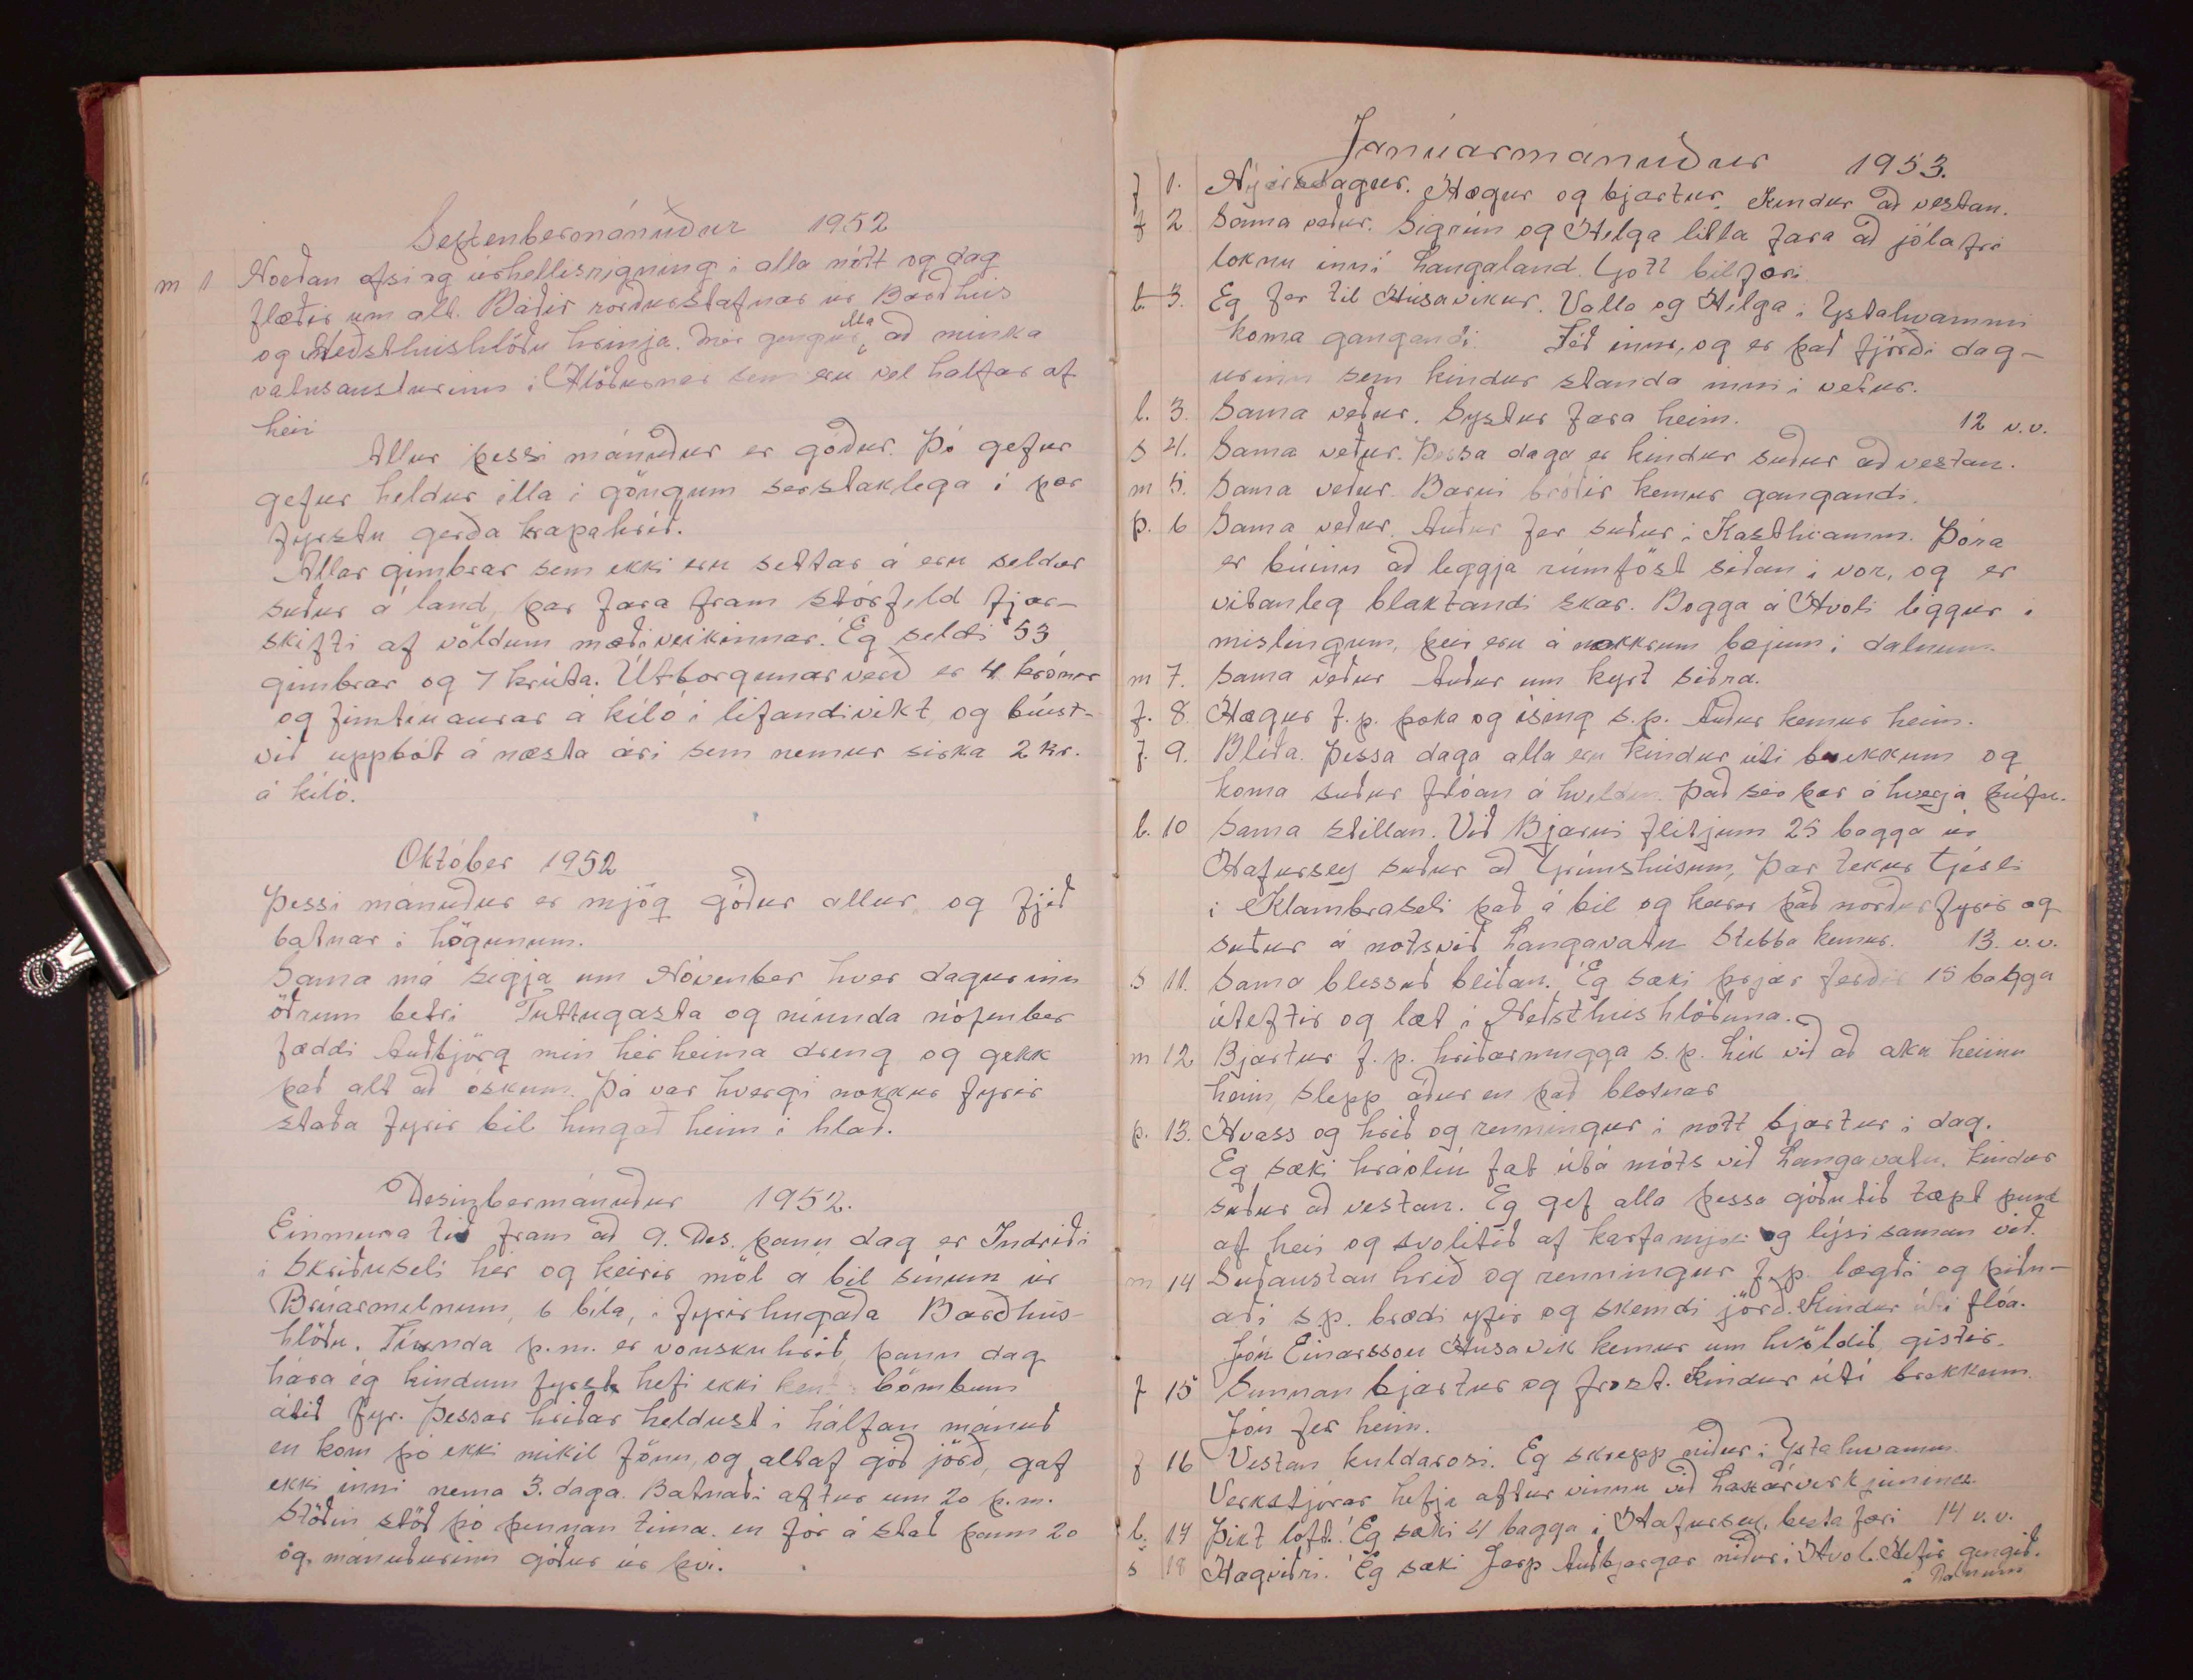 Septenbermánuður 1952
m 1 Norðan ofsi og úrhellisrigning i alla nótt og dag
flæðir um alt. Báðir norðurstafnar úr Barðhús
og Neðsthúshlöðu hrinja. Mér gengur illa að minka
vatnsausturinn i Hlöðurnar sem eru vel halfar af
heii
Allur þessi mánuður er góður. Þó gefur
gefur heldur illa i göngum serstaklega i þær
fyrstu gerða krapahríð.
Allar gimbrar sem ekki eru settar á eru seldar
suður á land, þar fara fram stórfeld fjár-
skifti af völdum mæðiveikinnar. Ég seldi 53
gimbrar og 7 hrúta. Útborgunarverð er 4 krónur
og fimtiu aurar á kíló i lifandi vikt og búist-
við uppbót á næsta ári sem nemur sirka 2 kr.
á kíló.
Október 1952
Þessi mánuður er mjög góður allur og fjéð
batnar i högunum.
Sama má segja um Nóvenber hver dagurinn
öðrum betri Tuttugasta og níunda nófenber
fæddi Auðbjörg mín hér heima dreng og gekk
það alt að óskum. Þá var hvergi nokkur fyrir
staða fyrir bíl hingað heim i hlað.
Desinbermánuður 1952.
Einmuna tíð fram að 9. Des. þann dag er Indriði
i Skriðuseli hér og keirir möl á bíl sínum úr
Brúarmelnum, 6 bíla, i fyrirhugaða Barðhús-
hlöðu. Tíunda þ.m. er vonsku hríð, þann dag
hára ég kindum fyrst hefi ekki kent lömbum
átið fyr. Þessar hríðar heldust i hálfan mánuð
en kom þó ekki mikil fönn, og altaf góð jörð, gaf
ekki inni nema 3. daga. Batnaði aftur um 20 þ.m.
Stöðin stöð þó þennan tíma en fór á stað þann 20
og mánuðurinn góður úr þvi.
Janúarmánuður 1953.
f 1. Nýársdagur. Hægur og bjartur. Kindur að vestan.
f 2 Sama veður. Sigrún og Helga litla fara að jólafri
loknu inní Langaland. Gott bílfæri
l. 3. Eg fer til Húsavíkur. Valla og Helga i Ystahvammi
koma gangandi. Féð inni, og er það fjórði dag-
urinn sem kindur standa inni i vetur.
l. 3. Sama veður. Systur fara heim. 12 v.v.
s 4. Sama veður. Þessa daga er kindur suður að vestan.
m 5. Sama veður. Barni bróðir kemur gangandi.
þ. 6 Sama veður. Auður fer suður i Kasthvamm. Þóra
er búinn að leggja rúmföst síðan i vor, og er
vitanleg blaktandi skar. Bogga á Hvoli liggur i
mislingum, þeir eru á nokkrum bæjum i dalnum.
m 7. Sama veður Auður um kyrt siðra.
f. 8 Hægur f.p. þoka og ísing s.p. Auður kemur heim.
f. 9. Blíða. Þessa daga alla eru kindur úti brekkum og
koma suður flóan á kveldin. Það sér þar á hverja þúfu.
l. 10 Sama stillan. Við Bjarni flitjum 25 bagga úr
Hafursey suður að Grímshúsum, þar tekur Gísli
i Klambraseli það á bíl og keirir það norður fyrir og
suður á mótsvið Langavatn Stebba kemur. 13. v.v.
s 11. Sama blessuð blíðan. Ég sæki þrjár ferðir 15 bagga
úteftir og læt i Neðsthúshlöðuna.
m 12 Bjartur f.p. hríðarmugga s.p. lík við að aka heiinu
heim, slepp áður en það blotnar
þ. 13. Hvass og hríð og renningur i nótt bjartur i dag.
Eg sæki hráolíu fat útá móts við Langavatn. Kindur
suður að vestan. Eg gef alla þessa góðutíð tæpt pund
af heii og svolitið af karfamjöli og lýsi saman við.
m 14 Suðaustan hríð og renningur f.p. lægði og þiðn-
aði s.p. bræddi yfir og skemdi jörð. Kindur úti flóa.
Jón Einarsson Husavik kemur um kvöldið, gistir.
f 15 Sunnan bjartur og frost. Kindur útí brekkum.
Jón fer heim.
f 16 Vestan kuldarosi. Eg skrepp niður i Ystahvamm.
Verkstjórar hefja aftur vinnu við Laxárverkjuninna.
l. 17 Þikt loft. Ég sæki 4 bagga i Hafursey, besta færi 14 v.v.
s 18 Hægviðri. Ég sæki Jarp Auðbjargar niður i Hvol. Hefir gengið.
i Dalnum